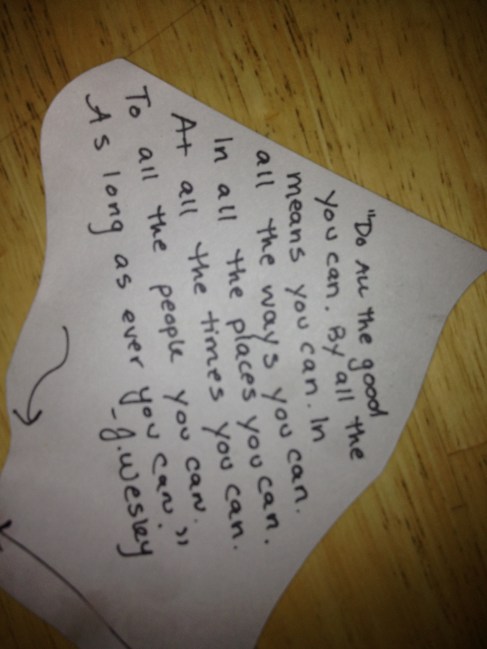 "Do All the good
you can. By all the
means you can. In
all the ways you can.
In all the places you can.
At all the times you can.
To all the people you can.
As long as ever you can."
-J. Wesley